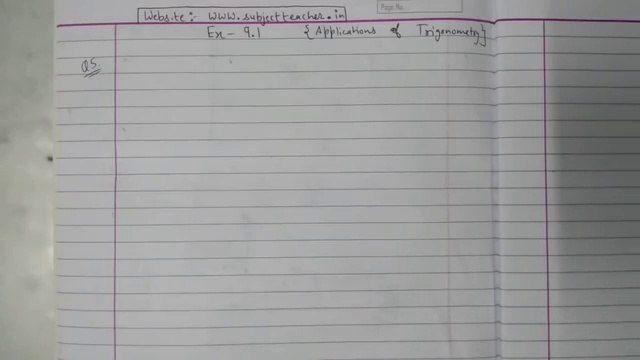 Website:- www.subjectteacher.in
Page No.
Ex- 9.1 {Applications of Trigonometry}
Q5.